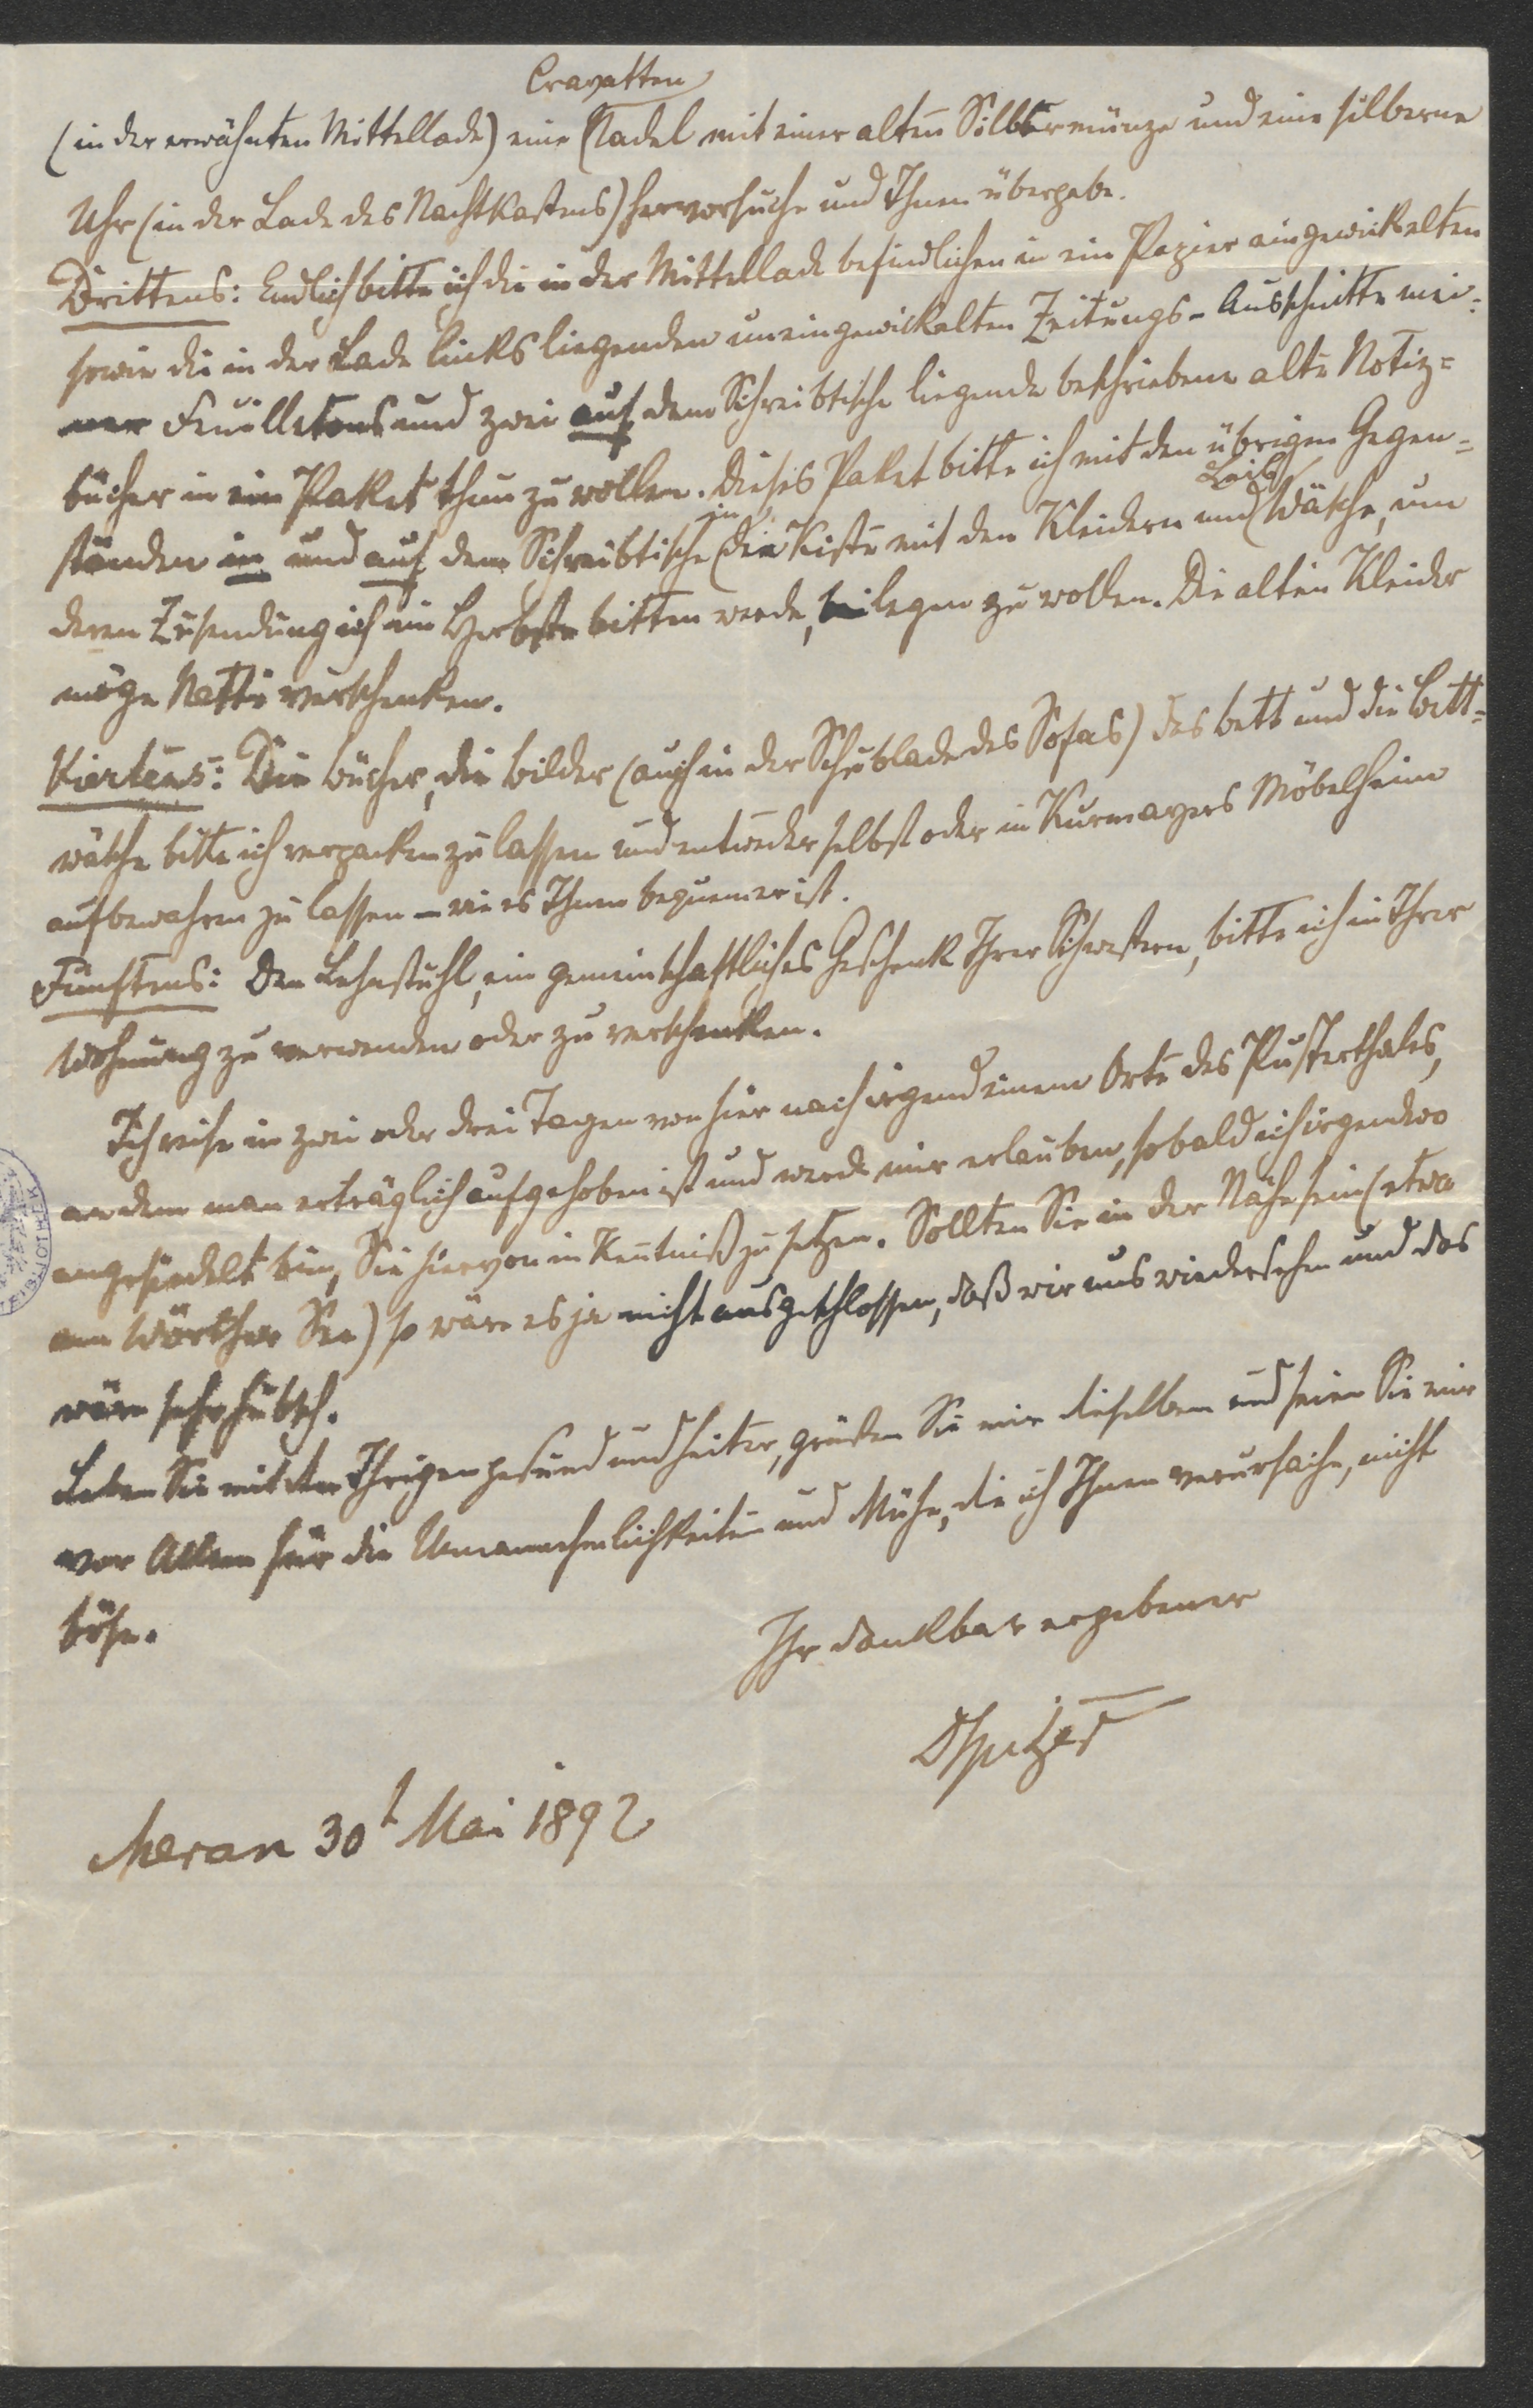 Cravatten
(in der erwähnten Mittellade) eine Nadel mit einer alten Silbermünze und eine silberne
Uhr (in der Lade des Nachtkastens) hervorsuche und Ihnen übergebe.
Drittens: Endlich bitte ich die in der Mittellade befindlichen in ein Papier eingewickelten
sowie die in der Lade links liegenden uneingewickelten Zeitungs-Ausschnitte mei=
ner Feuilletons und zwei auf dem Schreibtische liegende beschriebene alte Notiz=
bücher in ein Paket thun zu wollen. Dieses Paket bitte ich mit den übrigen Gegen=
Leib
ständen in und auf dem Schreibtische in die Kiste mit den Kleidern und Wäsche, um
deren Zusendung ich im Herbste bitten werde, beilegen zu wollen. Die alten Kleider
möge Netti verschenken.
Viertens: Die Bücher, die Bilder (auch in der Schublade des Sofas) das Bett und die Bett=
wäsche bitte ich verpacken zu lassen und entweder selbst oder in Kurmayers Möbelheim
aufbewahren zu lassen – wie es Ihnen bequemer ist.
Fünftens: Den Lehnstuhl, ein gemeinschaftliches Geschenk Ihrer Schwestern, bitte ich in Ihrer
Wohnung zu verwenden oder zu verschenken.
Ich reise in zwei oder drei Tagen von hier nach irgend einem Orte des Pusterthales,
an dem man erträglich aufgehoben ist und werde mir erlauben, sobald ich irgendwo
angesiedelt bin, Sie hiervon in Kentniß zu setzen. Sollten Sie in der Nähe sein (etwa
am Wörther See) so wäre es ja nicht ausgeschlossen, daß wir uns wiedersehen und das
wäre sehr hübsch.
Leben Sie mit den Ihrigen gesund und heiter, grüßen Sie mir dieselben und seien Sie mir
vor Allem für die Unannehmlichkeiten und Mühe, die ich Ihnen verursache, nicht
böse.
Ihr dankbar ergebener
DSpitzer
Meran 30t Mai 1892
BIBLIOTHEK